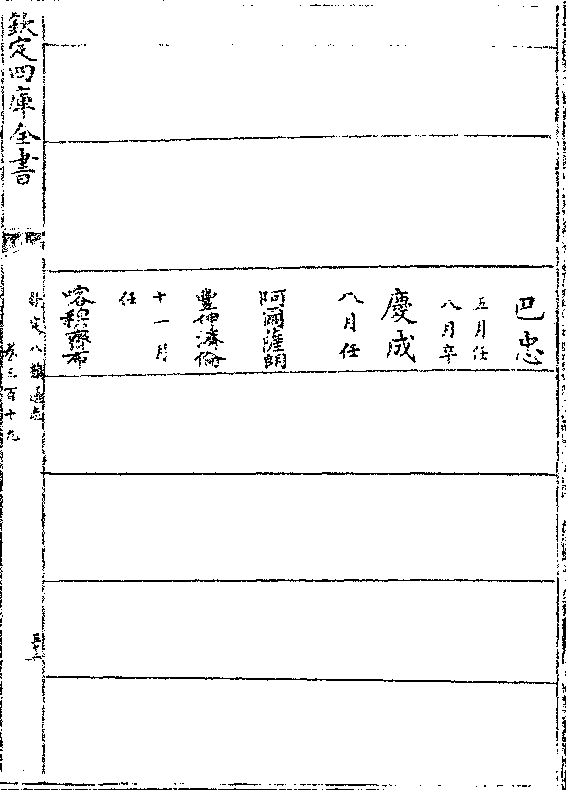 巴忠
五月任
八月卒
慶成
八月任
阿爾薩朗
豐伸濟倫
十一月
任
喀穆齊布
欽定四庫全書
欽定八旗通志
卷三百十九